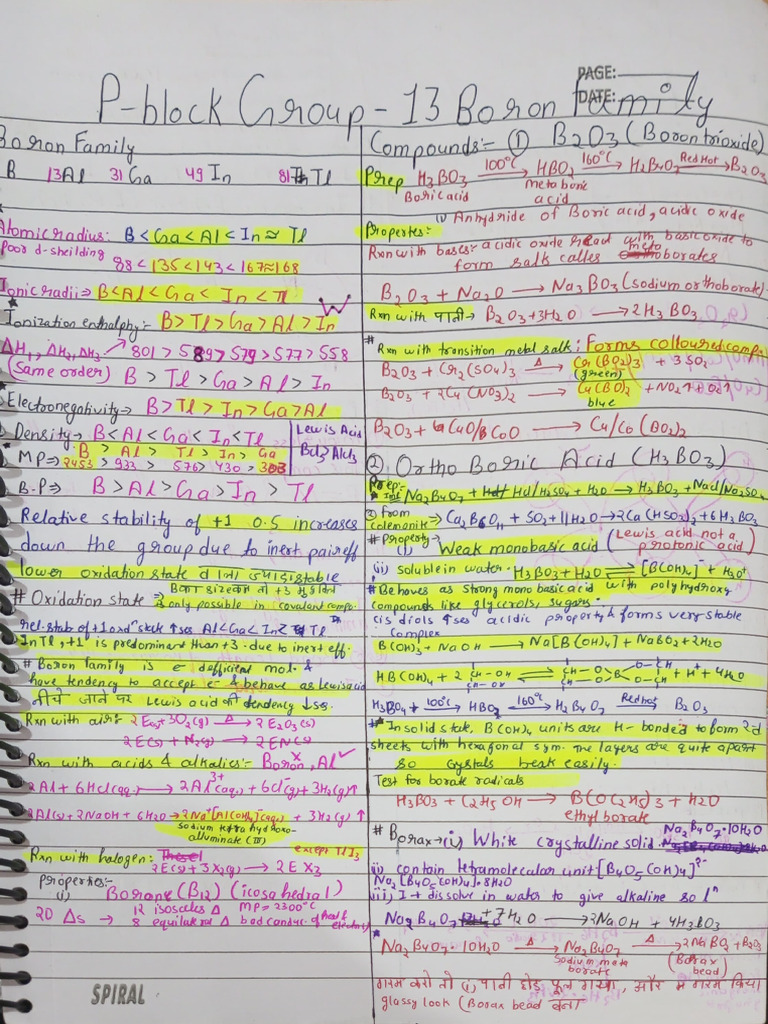 PAGE:
DATE:
P-block Group - 13 Boron Family
Boron Family
B 13Al 31Ga 49In 81Tl
Atomic radius: B < Ga < Al < In ≈ Tl
Poor d-sheilding
88 < 135 < 143 < 167 ≈ 168
Ionic radii => B < Al < Ga < In < Tl
Ionization enthalphy:- B > Tl > Ga > Al > In
ΔH1, ΔH2, ΔH3 801 > 589 > 579 > 577 > 558
(same order) B > Tl > Ga > Al > In
Electronegativity → B > Tl > In > Ga > Al
Density → B < Al < Ga < In < Tl
Lewis Acid
MP => B > Al > Tl > In > Ga
2453 > 933 > 576 > 430 > 303
B.P => B > Al > Ga > In > Tl
Relative stability of +1 O.S increases
down the group due to inert pair eff
lower oxidation state वाला ज्यादा stable
# Oxidation state =>
is only possible in covalent compo.
rel. stab of +1 oxdn state ↑ses Al < Ga < In < Tl
In Tl, +1 is predominant than +3 due to inert eff.
# Boron family is e- defficient mol. &
have tendency to accept e- & behave as lewis acid
नीचे जाने पर Lewis acid की tendency ↓se.
Rxn with air:- 2E(s) + 3O2(g) —Δ→ 2E2O3(s)
2E(s) + N2(g) → 2EN(s)
Rxn with acids & alkalies:- Boron x, Al ✓
2Al + 6HCl(aq) → 2Al3+(aq) + 6Cl-(g) + 3H2(g)↑
2Al(s) + 2NaOH + 6H2O → 2Na+[Al(OH)4]-(aq) + 3H2(g)↑
sodium tetra hydroxo-
alluminate (III)
Rxn with halogen: except TlI3
2E(s) + 3X2(g) → 2EX3
Properties:-
(i) Borane (B12) (icosahedral)
20 Δs → 12 isosceles Δ MP = 2300°C
8 equilateral Δ bad conduc. of heat & electricity
SPIRAL
Compounds:- ① B2O3 (Boron trioxide)
Prep H3BO3 —100°C→ HBO2 —160°C→ H2B4O7 —Red Hot→ B2O3
Boric acid metaboric
acid
(i) Anhydride of Boric acid, acidic oxide
Propertes:-
Rxn with bases:- acidic oxide read with basic oxide to
form salts calles meta borates
B2O3 + Na2O → Na3BO3 (sodium orthoborate).
Rxn with पानी:- B2O3 + 3H2O → 2H3BO3
# Rxn with transition metal salts: Forms coloured comp.
B2O3 + Cr2(SO4)3 —Δ→ Cr(BO2)3 + 3SO3
(green)
B2O3 + 2Cu(NO3)2 → Cu(BO2)2 + NO2↑ + O2↑
blue
B2O3 + CuO/CoO → Cu/Co(BO2)2
② Ortho Boric Acid (H3BO3)
Prep:-
Na2B4O7 + HCl/H2SO4 + H2O → H3BO3 + NaCl/Na2SO4
② From
colemanite Ca2B6O11 + SO2 + 11H2O → 2Ca(HSO3)2 + 6H3BO3
# Property:-
(i) Weak monobasic acid (Lewis acid not a
protonic acid)
(ii) soluble in water. H3BO3 + H2O ⇌ [B(OH)4]- + H3O+
# Behaves as strong monobasic acid with polyhydroxy
compounds like glycerols, sugars
cis diols ↑ses acidic property & forms very stable
complex
B(OH)3 + NaOH → Na[B(OH)4] + NaBO2 + 2H2O
HB(OH)4 + 2 CH-OH CH-OH ⇌ CH-O CH-O B O-CH O-CH + H+ + 4H2O
H3BO4 —100°C→ HBO2 —160°C→ H2B4O7 —Red Hot→ B2O3
# In solid state, B(OH)4 units are H-bonded to form 2-d
sheets with hexagonal sym. The layers are quite apart
so crystals beak easily.
Test for borate radicals
H3BO3 + C2H5OH → B(OC2H5)3 + H2O
ethyl borate
# Borax → (i) White crystalline solid. Na2B4O7·10H2O
ii) contain tetramolecular unit [B4O5(OH)4]2-
Na2[B4O5(OH)4]·8H2O
iii) It dissolve in water to give alkaline soln
Na2B4O7 + 7H2O → 2NaOH + 4H3BO3
Na2B4O7·10H2O —Δ→ Na2B4O7 —Δ→ 2NaBO2 + B2O3
Sodium meta (Borax
borate bead)
गरम करो तो (i) पानी छोड़ फूल गया, और गरम किया
glassy look (Borax bead बना